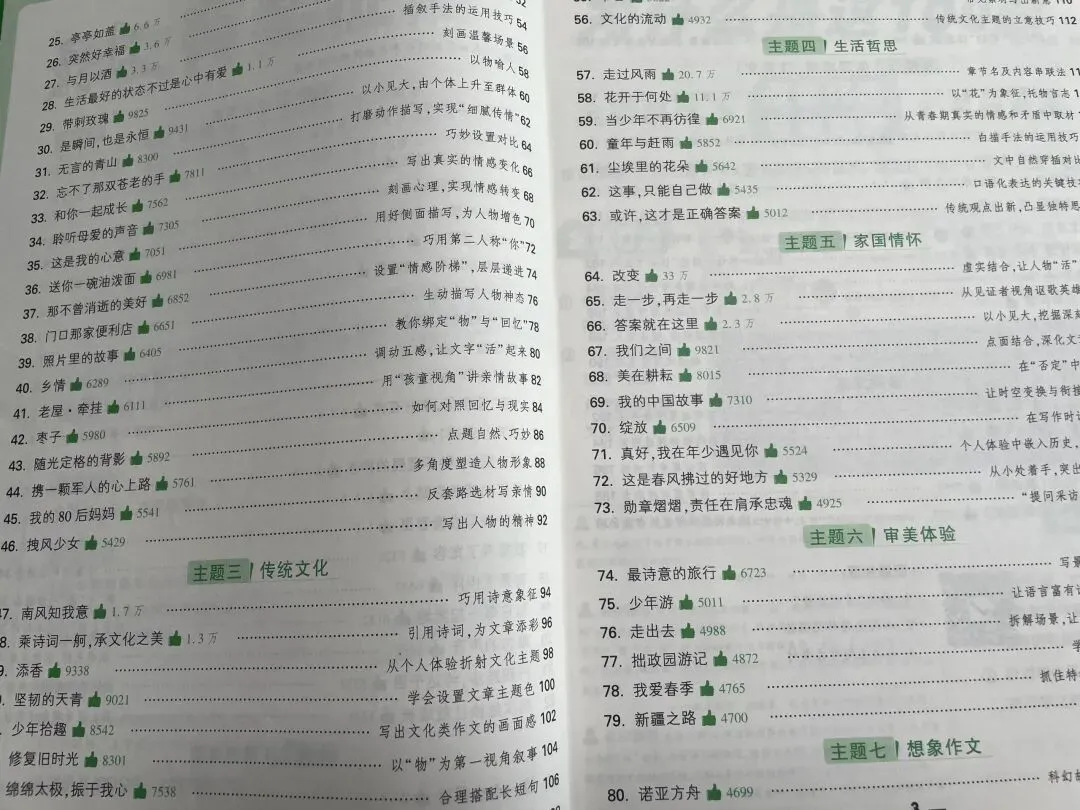 25. 亭亭如盖 6.6万
26. 突然好幸福 3.6万 52
27. 与月以酒 3.3万 插叙手法的运用技巧 54
28. 生活最好的状态不过是心中有爱 1.1万 刻画温馨场景 56
29. 带刺玫瑰 9825 以物喻人 58
30. 是瞬间,也是永恒 9431 以小见大,由个体上升至群体 60
31. 无言的青山 8300 打磨动作描写,实现“细腻传情” 62
32. 忘不了那双苍老的手 7811 巧妙设置对比 64
33. 和你一起成长 7562 写出真实的情感变化 66
34. 聆听母爱的声音 7305 刻画心理,实现情感转变 68
35. 这是我的心意 7051 用好侧面描写,为人物增色 70
36. 送你一碗油泼面 6981 巧用第二人称“你” 72
37. 那不曾消逝的美好 6852 设置“情感阶梯”,层层递进 74
38. 门口那家便利店 6651 生动描写人物神态 76
39. 照片里的故事 6405 教你绑定“物”与“回忆” 78
40. 乡情 6289 调动五感,让文字“活”起来 80
41. 老屋·牵挂 6111 用“孩童视角”讲亲情故事 82
42. 枣子 5980 如何对照回忆与现实 84
43. 随光定格的背影 5892 点题自然、巧妙 86
44. 携一颗军人的心上路 5761 多角度塑造人物形象 88
45. 我的80后妈妈 5541 反套路选材写亲情 90
46. 拽风少女 5429 写出人物的精神 92
主题三 传统文化
7. 南风知我意 1.7万 巧用诗意象征 94
8. 乘诗词一舸,承文化之美 1.3万 引用诗词,为文章添彩 96
9. 添香 9338 从个人体验折射文化主题 98
坚韧的天青 9021 学会设置文章主题色 100
少年拾趣 8542 写出文化类作文的画面感 102
修复旧时光 8301 以“物”为第一视角叙事 104
绵绵太极,振于我心 7538 合理搭配长短句 106
56. 文化的流动 4932 传统文化主题的立意技巧 112
主题四 生活哲思
57. 走过风雨 20.7万 章节名及内容串联法 11
58. 花开于何处 11.1万 以“花”为象征,托物言志 1
59. 当少年不再彷徨 6921 从青春期真实的情感和矛盾中取材
60. 童年与赶雨 5852 白描手法的运用技巧
61. 尘埃里的花朵 5642 文中自然穿插对比
62. 这事,只能自己做 5435 口语化表达的关键技
63. 或许,这才是正确答案 5012 传统观点出新,凸显独特思
主题五 家国情怀
64. 改变 33万 虚实结合,让人物“活”
65. 走一步,再走一步 2.8万 从见证者视角讴歌英雄
66. 答案就在这里 2.3万 以小见大,挖掘深
67. 我们之间 9821 点面结合,深化文
68. 美在耕耘 8015 在“否定”中
69. 我的中国故事 7310 让时空变换与衔接
70. 绽放 6509 在写作时
71. 真好,我在年少遇见你 5524 个人体验中嵌入历史,
72. 这是春风拂过的好地方 5329 从小处着手,突出
73. 勋章熠熠,责任在肩承忠魂 4925 “提问采访
主题六 审美体验
74. 最诗意的旅行 6723 写景
75. 少年游 5011 让语言富有
76. 走出去 4988 拆解场景,让
77. 拙政园游记 4872 学
78. 我爱春季 4765 抓住特
79. 新疆之路 4700
主题七 想象作文
80. 诺亚方舟 4699 科幻
3